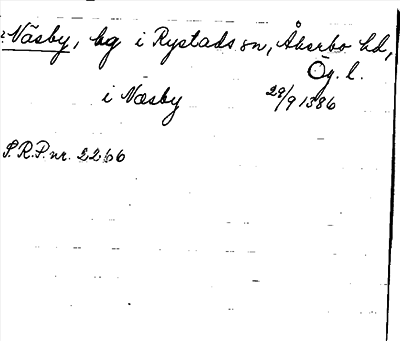 Näsby, bg i Rystads sn, Åkerbo hd,
Ög. l.
i Næsby 28/9 1386
S.R.P. nr. 2266